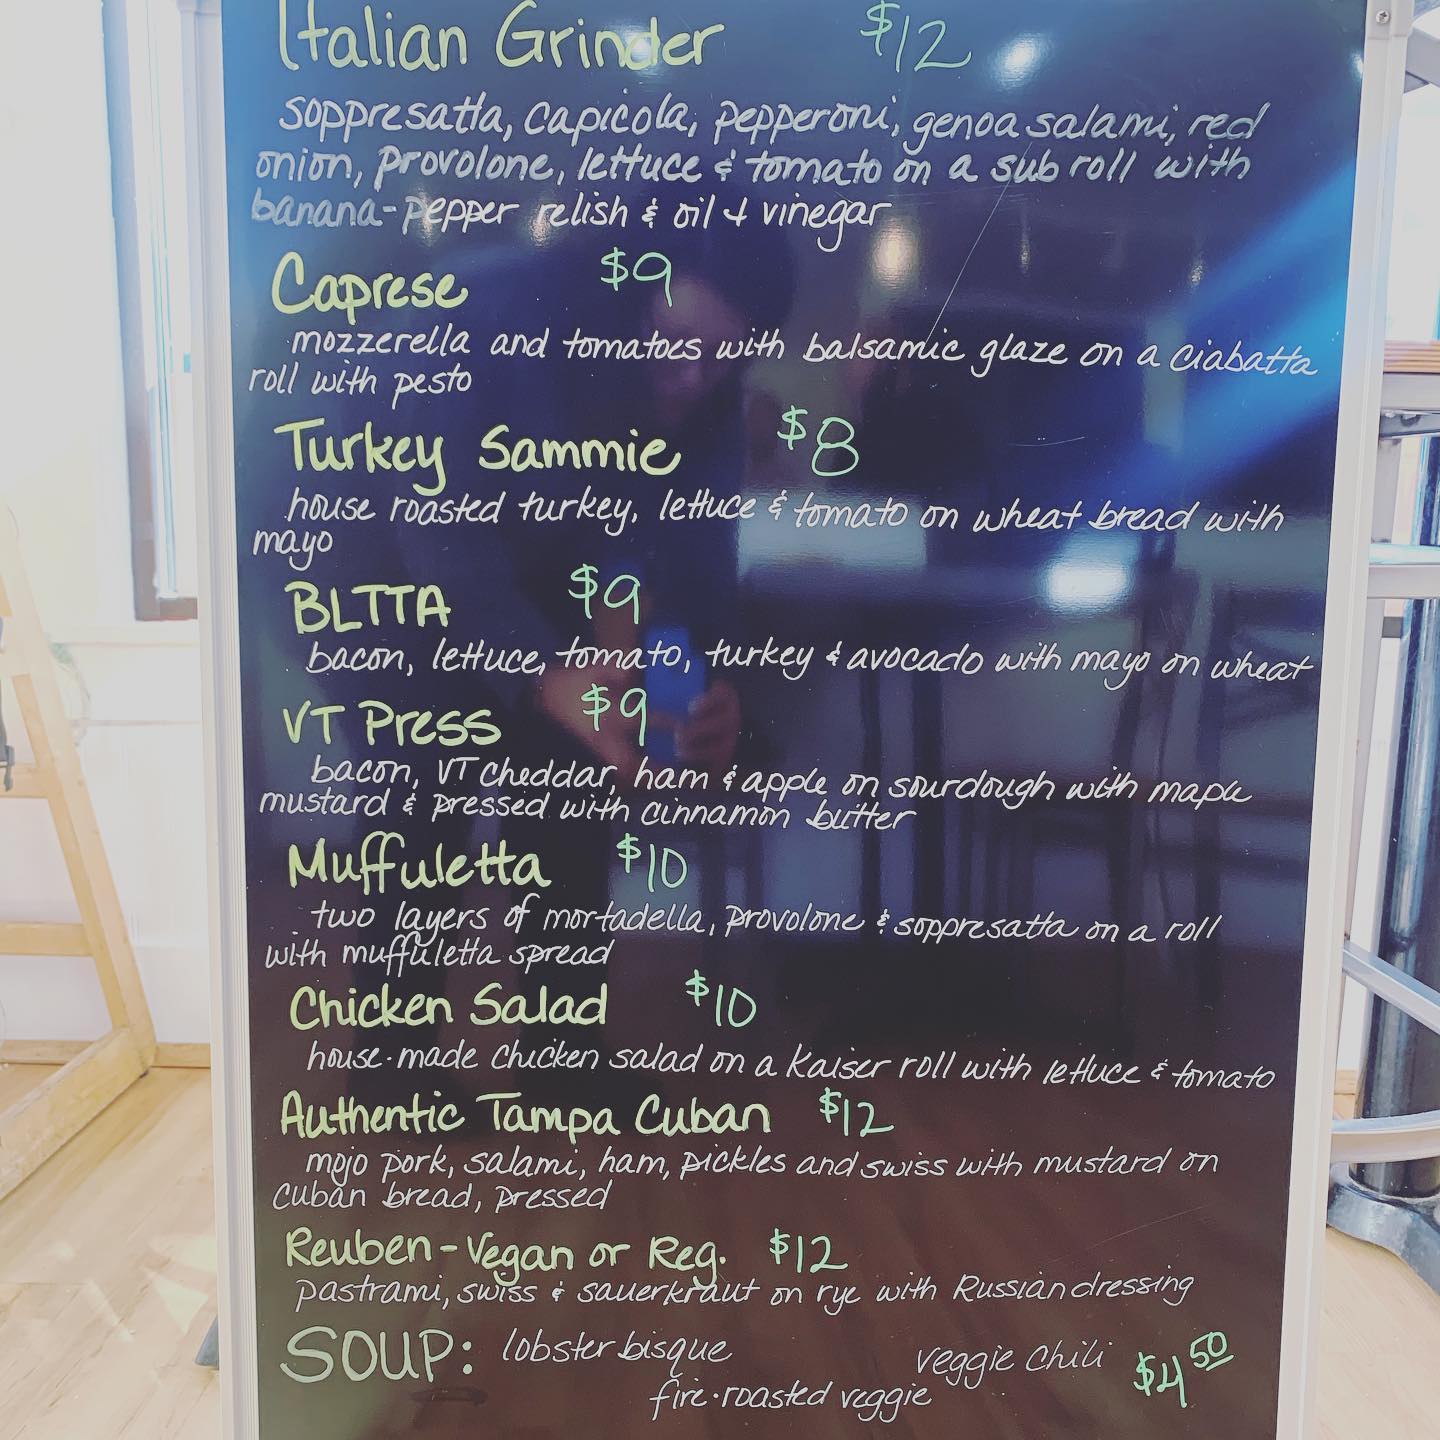 Italian Grinder $12
soppresatta, capicola, pepperoni, genoa salami, red
onion, provolone, lettuce & tomato on a sub roll with
banana-pepper relish & oil + vinegar
Caprese $9
mozzerella and tomatoes with balsamic glaze on a ciabatta
roll with pesto
Turkey Sammie $8
house roasted turkey, lettuce & tomato on wheat bread with
mayo
BLTTA $9
bacon, lettuce, tomato, turkey & avocado with mayo on wheat
VT Press $9
bacon, VT cheddar, ham & apple on sourdough with maple
mustard & pressed with cinnamon butter
Muffuletta $10
two layers of mortadella, provolone & soppresatta on a roll
with muffuletta spread
Chicken Salad $10
house-made chicken salad on a Kaiser roll with lettuce & tomato
Authentic Tampa Cuban $12
mojo pork, salami, ham, pickles and swiss with mustard on
cuban bread, pressed
Reuben-Vegan or Reg. $12
pastrami, swiss & sauerkraut on rye with Russian dressing
SOUP: lobster bisque veggie chili $4 50
fire-roasted veggie